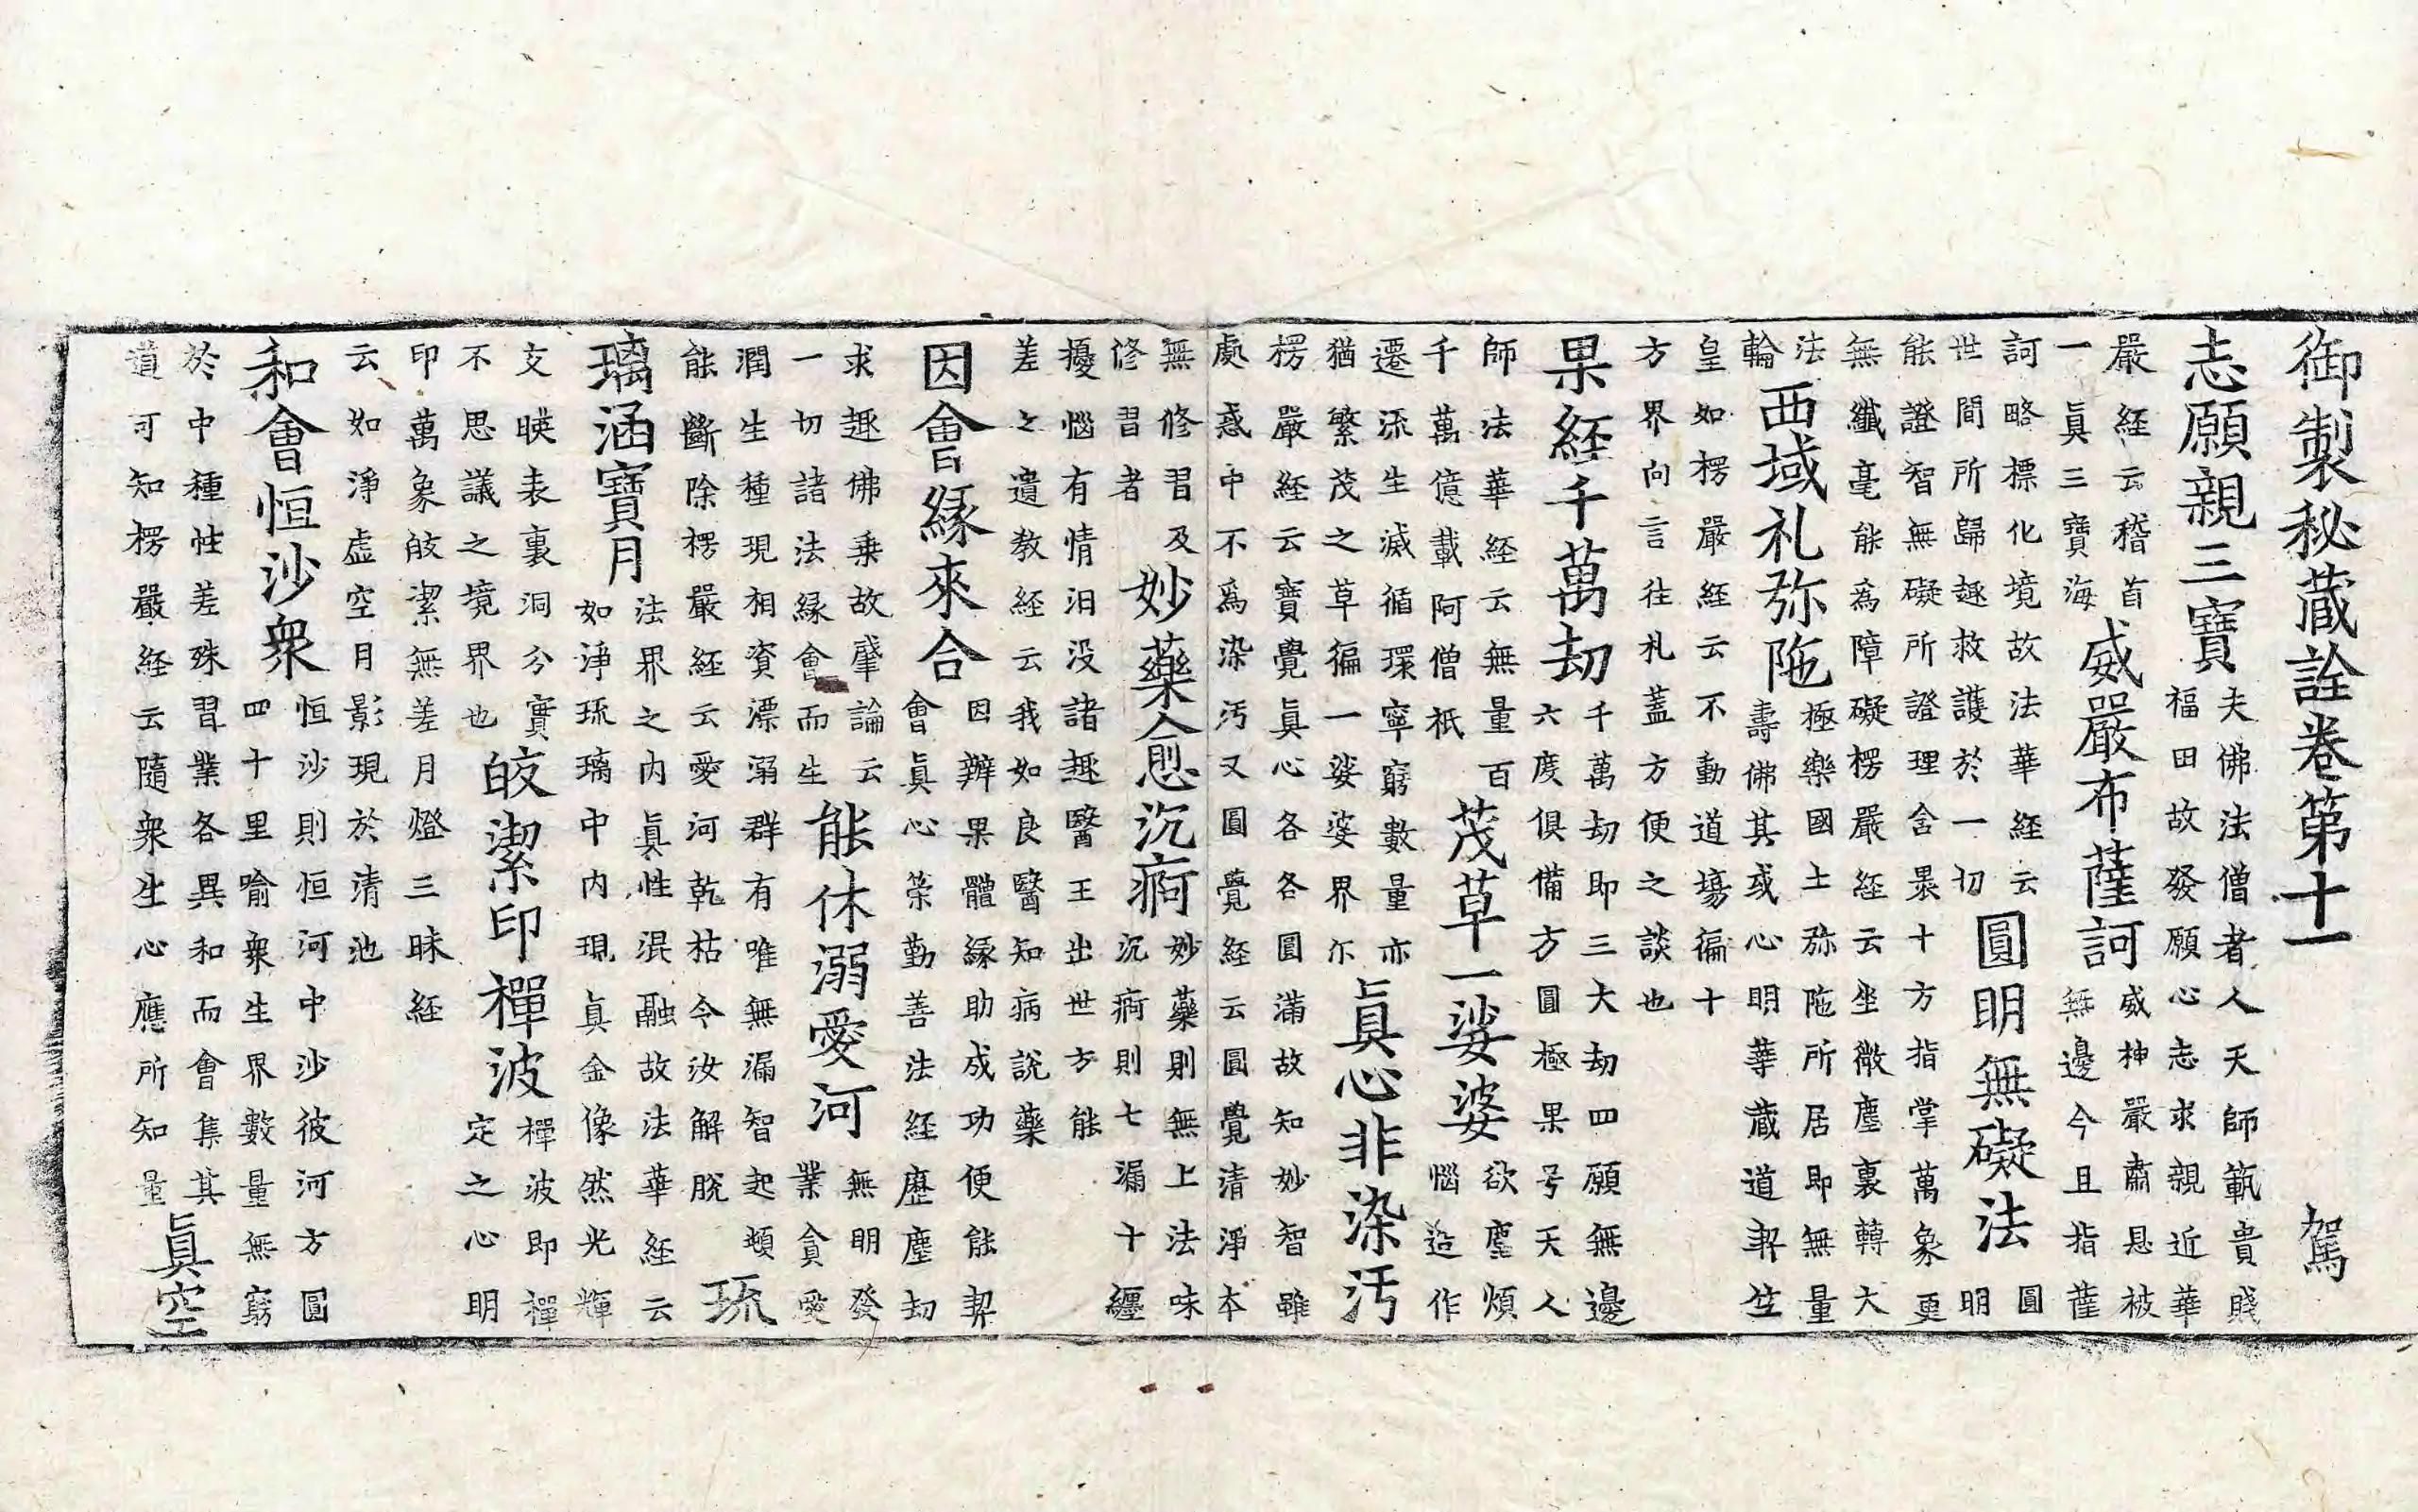 御製秘蔵詮卷第十一 駕
志願親三寶
夫佛法僧者人天師範貴賤
福田故發願心志求親近華
嚴経云稽首
一眞三寶海
威嚴布薩訶
威神嚴肅恳被
無邊今且指薩
訶略標化境故法華経云
世間所歸趣救護於一切
圓明無礙法
圓
明
能證智無礙所證理舍㬎十方指掌萬象更
無纖毫能為障礙楞嚴経云坐微塵裏轉大
法
輪
西域礼弥陁
極樂國土弥陁所居即無量
壽佛其或心明華蔵道契竺
皇如楞嚴経云不動道場徧十
方界向言往礼蓋方便之談也
果経千萬劫
千萬劫即三大劫四願無邊
六度俱備方圓極果号天人
師法華経云無量百
千萬億載阿僧祇
茂草一娑婆
欲塵煩
惱造作
遷流生滅循環寧窮數量亦
猶繁茂之草徧一娑婆界尓
眞心非染汚
楞嚴経云寶覺眞心各各圓滿故知妙智雖
處惑中不為染汚又圓覺経云圓覺清淨本
無修習及
修習者
妙藥愈沉痾
妙藥則無上法味
沉痾則七漏十纏
擾惱有情汨没諸趣醫王出世方能
差之遺教経云我如良醫知病說藥
因會緣來合
因辦果體緣助成功便能契
會眞心䇿勤善法経歷塵劫
求趣佛乗故肇論云
一切諸法緣會而生
能休溺愛河
無明發
業貪愛
潤生種現相資漂溺群有唯無漏智起頓
能斷除楞嚴経云愛河乾枯令汝解脫
琉
璃涵寶月
法界之内眞性混融故法華経云
如淨琉璃中内現真金像然光輝
交暎表裏洞分實
不思議之境界也
皎潔印禪波
禪波即禪
定之心明
印萬象皎潔無差月燈三昧経
云如淨虚空月影現於清池
和會恒沙衆
恒沙則恒河中沙彼河方圓
四十里喻衆生界數量無窮
於中種性差殊習業各異和而會集其
道可知楞嚴経云隨衆生心應所知量
眞空